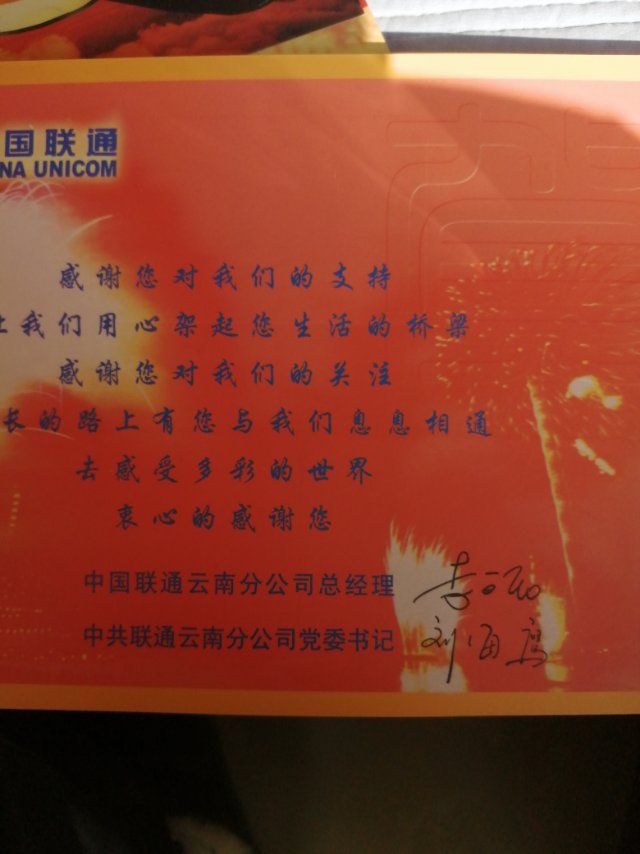 国联通
NA UNICOM
感谢您对我们的支持
让我们用心架起您生活的桥梁
感谢您对我们的关注
长的路上有您与我们息息相通
去感受多彩的世界
衷心的感谢您
中国联通云南分公司总经理
中共联通云南分公司党委书记